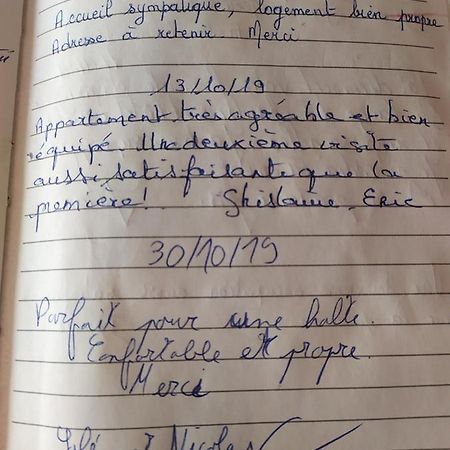 Accueil sympatique, logement bien propre
Adresse à retenir Merci
13/10/19
Appartement très agréable et bien
équipé. Un deuxième visite
aussi satisfaisante que la
première! Ghislaine. Eric
30/10/19
Parfait pour une halte.
Confortable et propre.
Merci
Nicolas